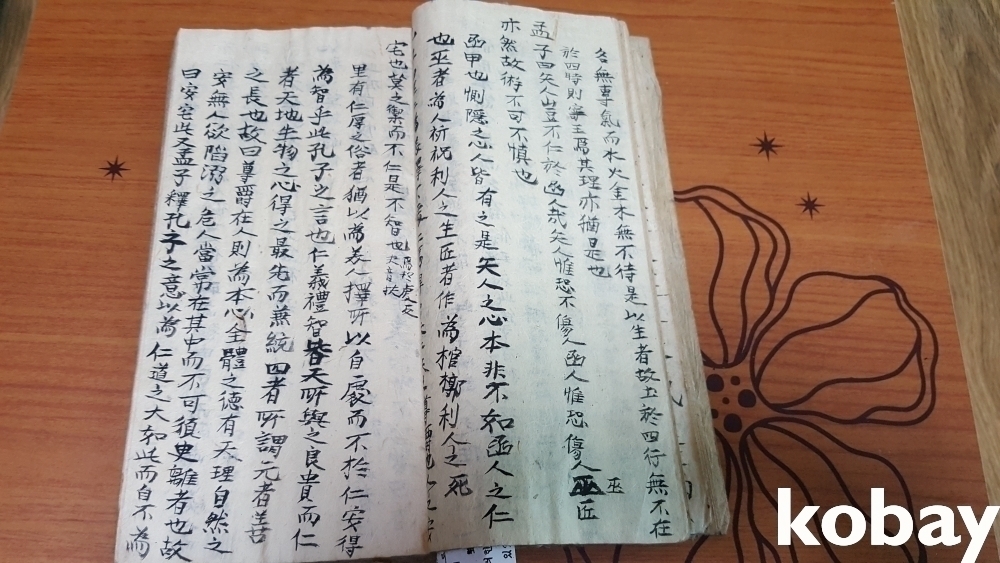 名無專氣而水火金木無不待是以生者故土於四行無不在
於四時則寄王焉其理亦猶是也
孟子曰矢人豈不仁於函人哉矢人惟恐不傷人函人惟恐傷人巫匠
巫
亦然故術不可不慎也
函甲也惻隱之心人皆有之是矢人之心本非不如函人之仁
也巫者為人祈祝利人之生匠者作為棺槨利人之死
宅也莫之禦而不仁是不智也
里有仁厚之俗者猶以為美人擇所以自處而不於仁安得
為智乎此孔子之言也仁義禮智皆天所與之良貴而仁
者天地生物之心得之最先而兼統四者所謂元者善
之長也故曰尊爵在人則為本心全體之德有天理自然之
安無人欲陷溺之危人當常在其中而不可須臾離者也故
曰安宅此又孟子釋孔子之意以為仁道之大如此而自不為
kobay